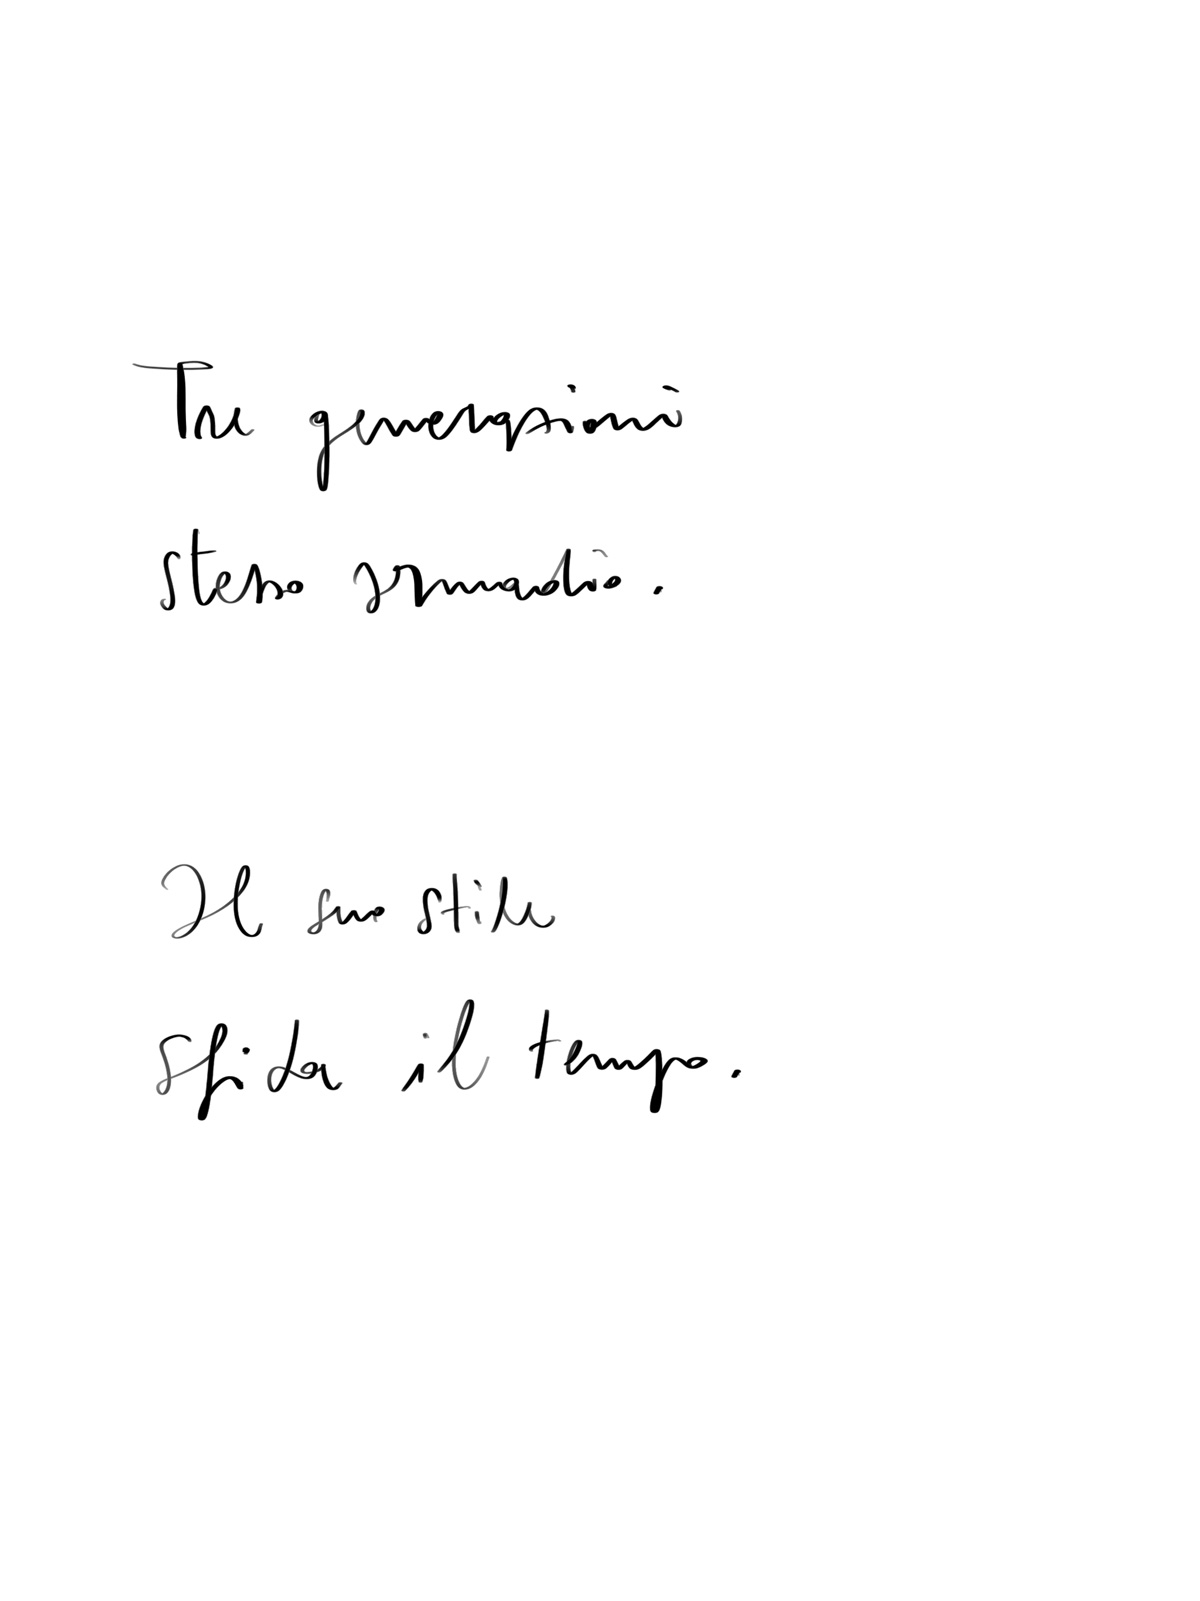 Tre generazioni
stesso armadio.
Il suo stile
sfida il tempo.